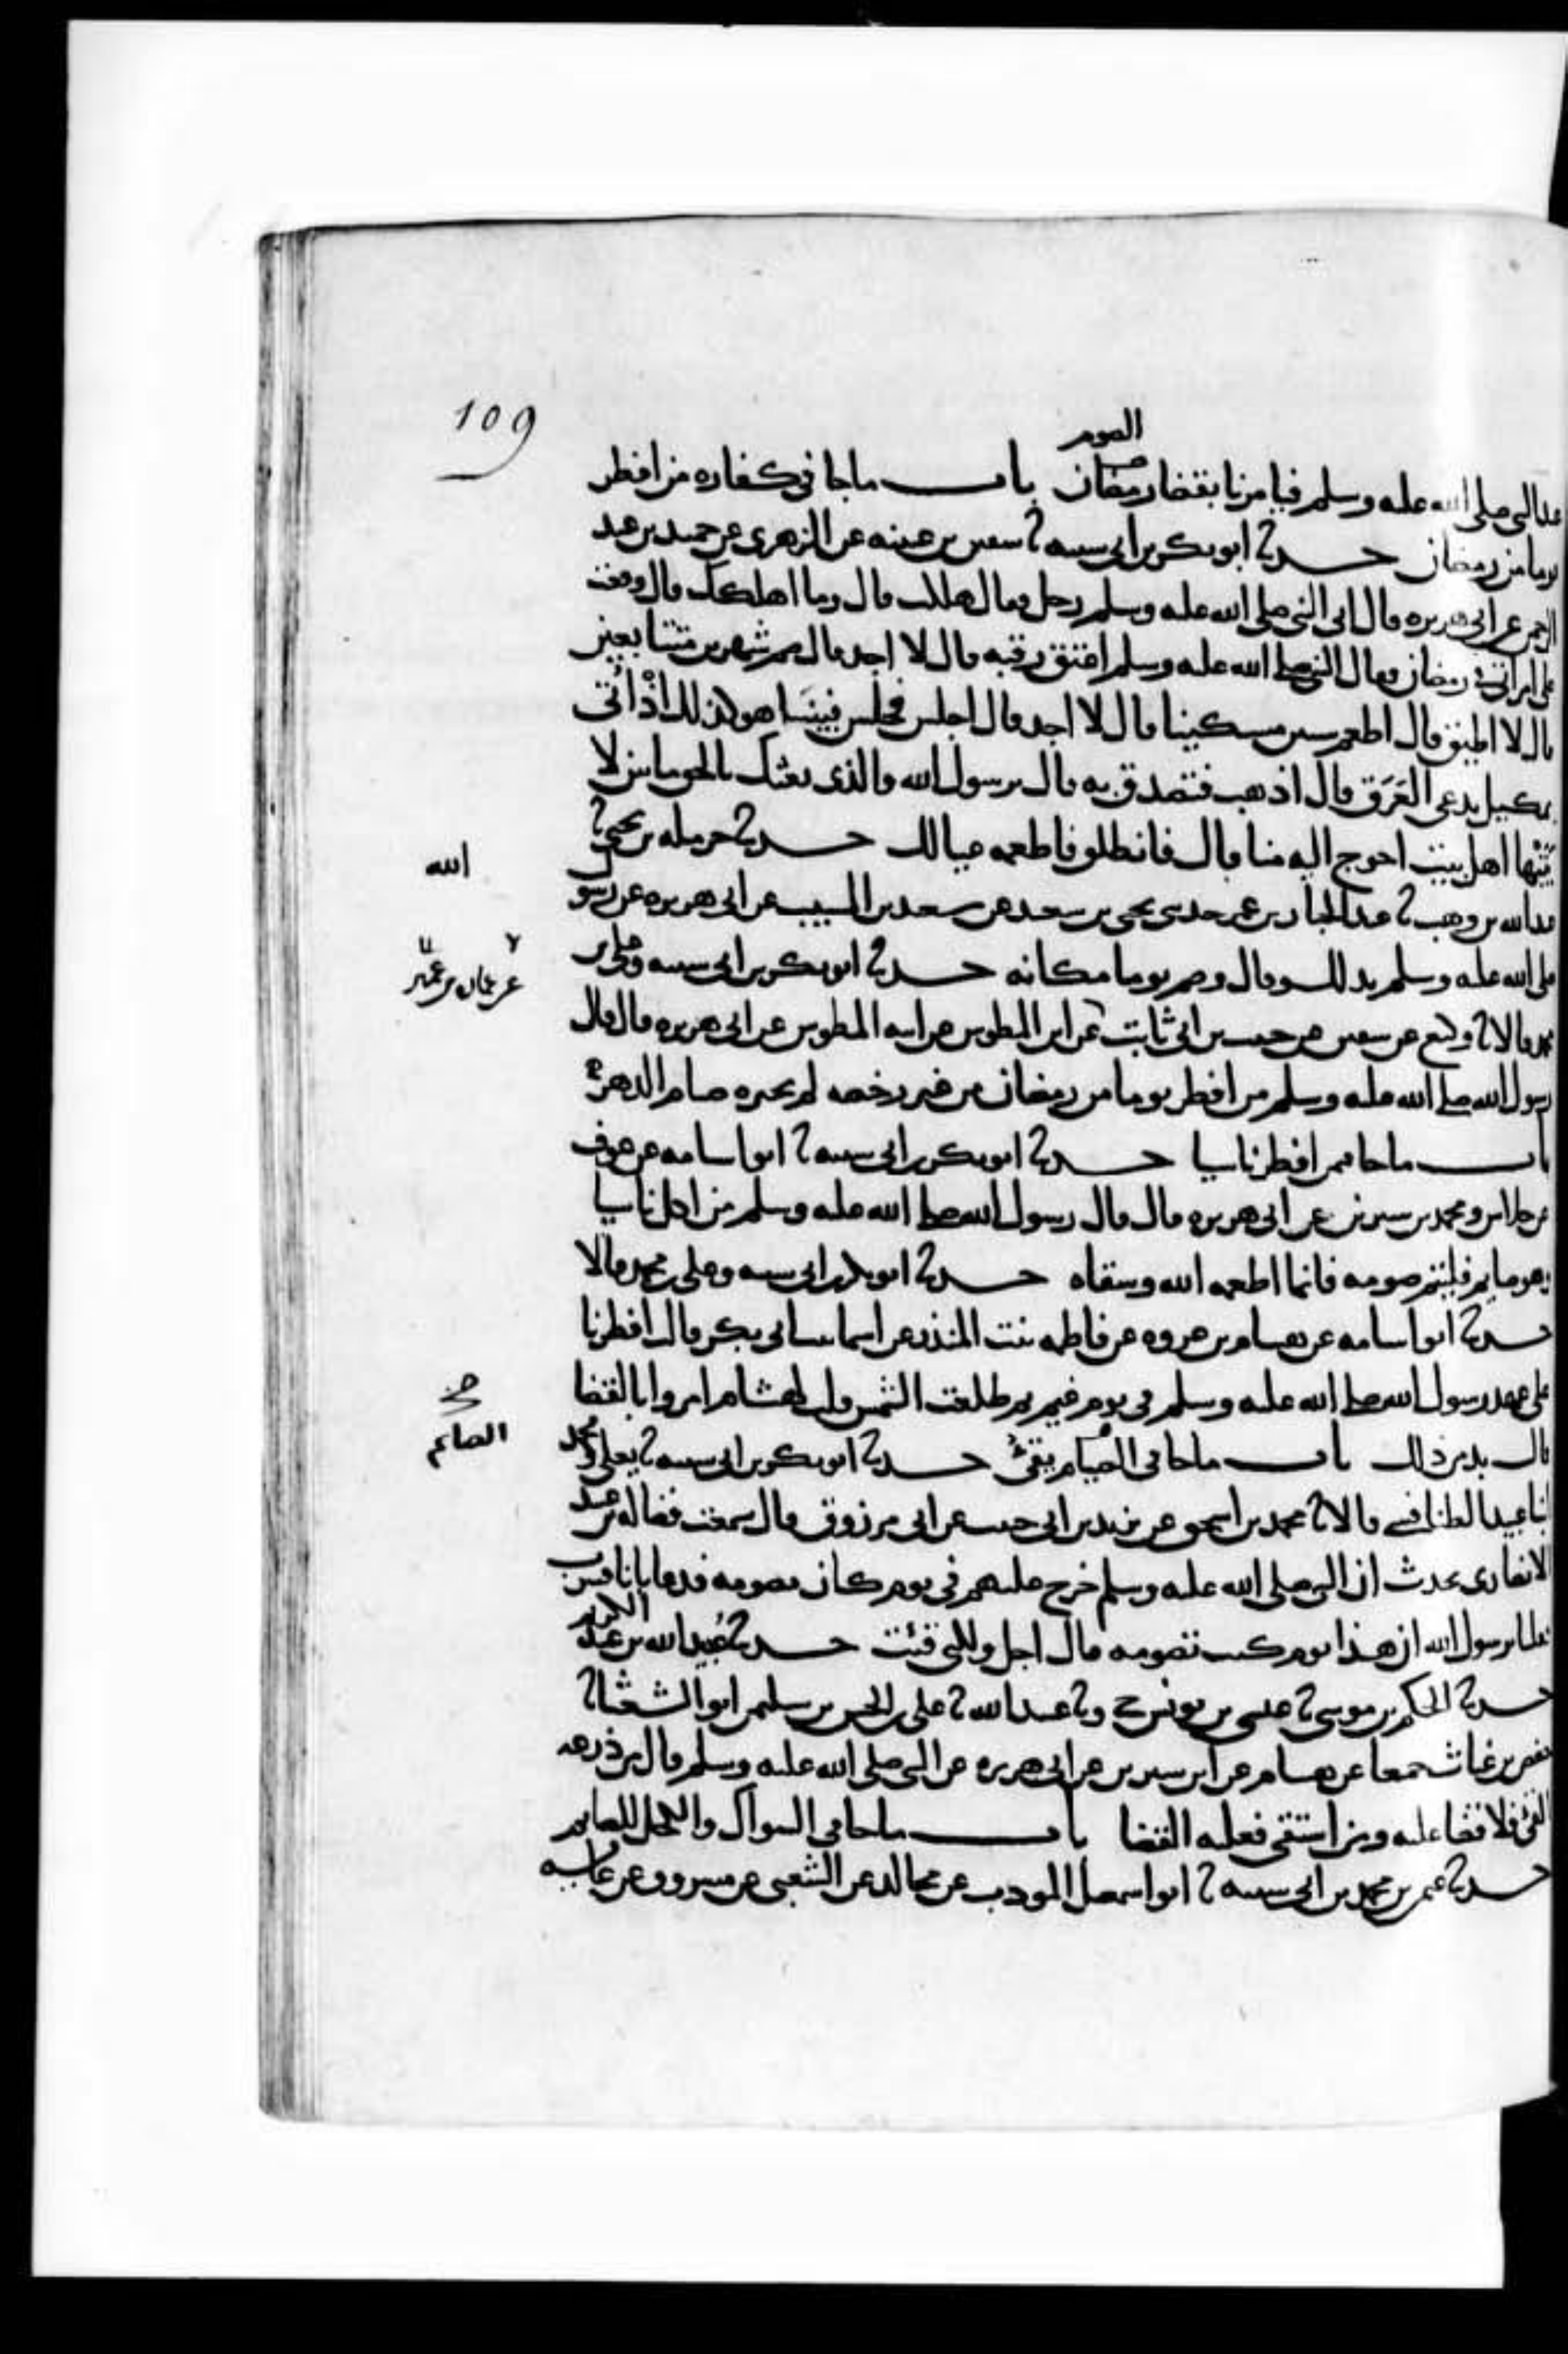 109
الصوم
عند النبي صلى الله عليه وسلم فيامرنا بقضا رمضان باب ما جا في كفاره من افطر
يوما من رمضان حدثنا ابو بكر بن ابي شيبه ثنا سفين بن عيينه عن الزهري عن حميد بن عبد
الرحمن عن ابي هريره قال اتى النبي صلى الله عليه وسلم رجل فقال هلكت قال وما اهلكك قال وقعت
على امراتي في رمضان فقال النبي صلى الله عليه وسلم اعتق رقبه قال لا اجد قال صم شهرين متتابعين
قال لا اطيق قال اطعم ستين مسكينا قال لا اجد قال اجلس فجلس فبينما هو كذلك اذ أتى
بمكيل يدعى العَرَق قال اذهب فتصدق به قال يرسول الله والذي بعثك بالحق ما بين لا
بتيها اهل بيت احوج اليه منا قال فانطلق فاطعمه عيالك حدثنا حرمله بن يحيى ثنا
عبد الله بن وهب ثنا عبد الجبار بن عمر حدثني يحيى بن سعيد عن سعيد بن المسيب عن ابي هريره عن رسول
الله
صلى الله عليه وسلم بذلك وقال وصم يوما مكانه حدثنا ابو بكر بن ابي شيبه وعلي بن
محمد قالا ثنا وكيع عن سفين عن حبيب بن ابي ثابت عن ابن المطوس عن ابيه المطوس عن ابي هريره قال قال
رسول الله صلى الله عليه وسلم من افطر يوما من رمضان من غير رخصه لم يجزه صيام الدهر
باب ما جا فيمن افطر ناسيا حدثنا ابو بكر بن ابي شيبه ثنا ابو اسامه عن عوف
عن خلاس ومحمد بن سيرين عن ابي هريره قال قال رسول الله صلى الله عليه وسلم من اكل ناسيا
وهو صايم فليتم صومه فانما اطعمه الله وسقاه حدثنا ابو بكر بن ابي شيبه وعلي بن محمد قالا
حدثنا ابو اسامه عن هشام بن عروه عن فاطمه بنت المنذر عن اسما بنت ابي بكر قالت افطرنا
على عهد رسول الله صلى الله عليه وسلم في يوم غيم ثم طلعت الشمس قلت لهشام امروا بالقضا
قال بد من ذلك باب ما جا في الصيام يقئ حدثنا ابو بكر بن ابي شيبه ثنا يعلى ومحمد
الصايم
ابنا عبيد الطنافسي قالا ثنا محمد بن اسحق عن يزيد بن ابي حبيب عن ابي مرزوق قال سمعت فضاله بن عبيد
الانصاري يحدث ان النبي صلى الله عليه وسلم خرج عليهم في يوم كان يصومه فدعا بانا فشرب
فقلنا يرسول الله ان هذا يوم كنت تصومه قال اجل ولكني قئت حدثنا عبيد الله بن عبد
الكريم
حدثنا الحكم بن موسى ثنا عيسى بن يونس ح وثنا عبيد الله ثنا علي بن الحسن بن سليمن ابو الشعثا ثنا
حفص بن غياث جميعا عن هشام عن ابن سيرين عن ابي هريره عن النبي صلى الله عليه وسلم قال من ذرعه
القئ فلا قضا عليه ومن استقى فعليه القضا باب ما جا في السواك والكحل للصايم
حدثنا عمر بن محمد بن ابي شيبه ثنا ابو اسمعيل المودب عن مجالد عن الشعبي عن مسروق عن عايشه